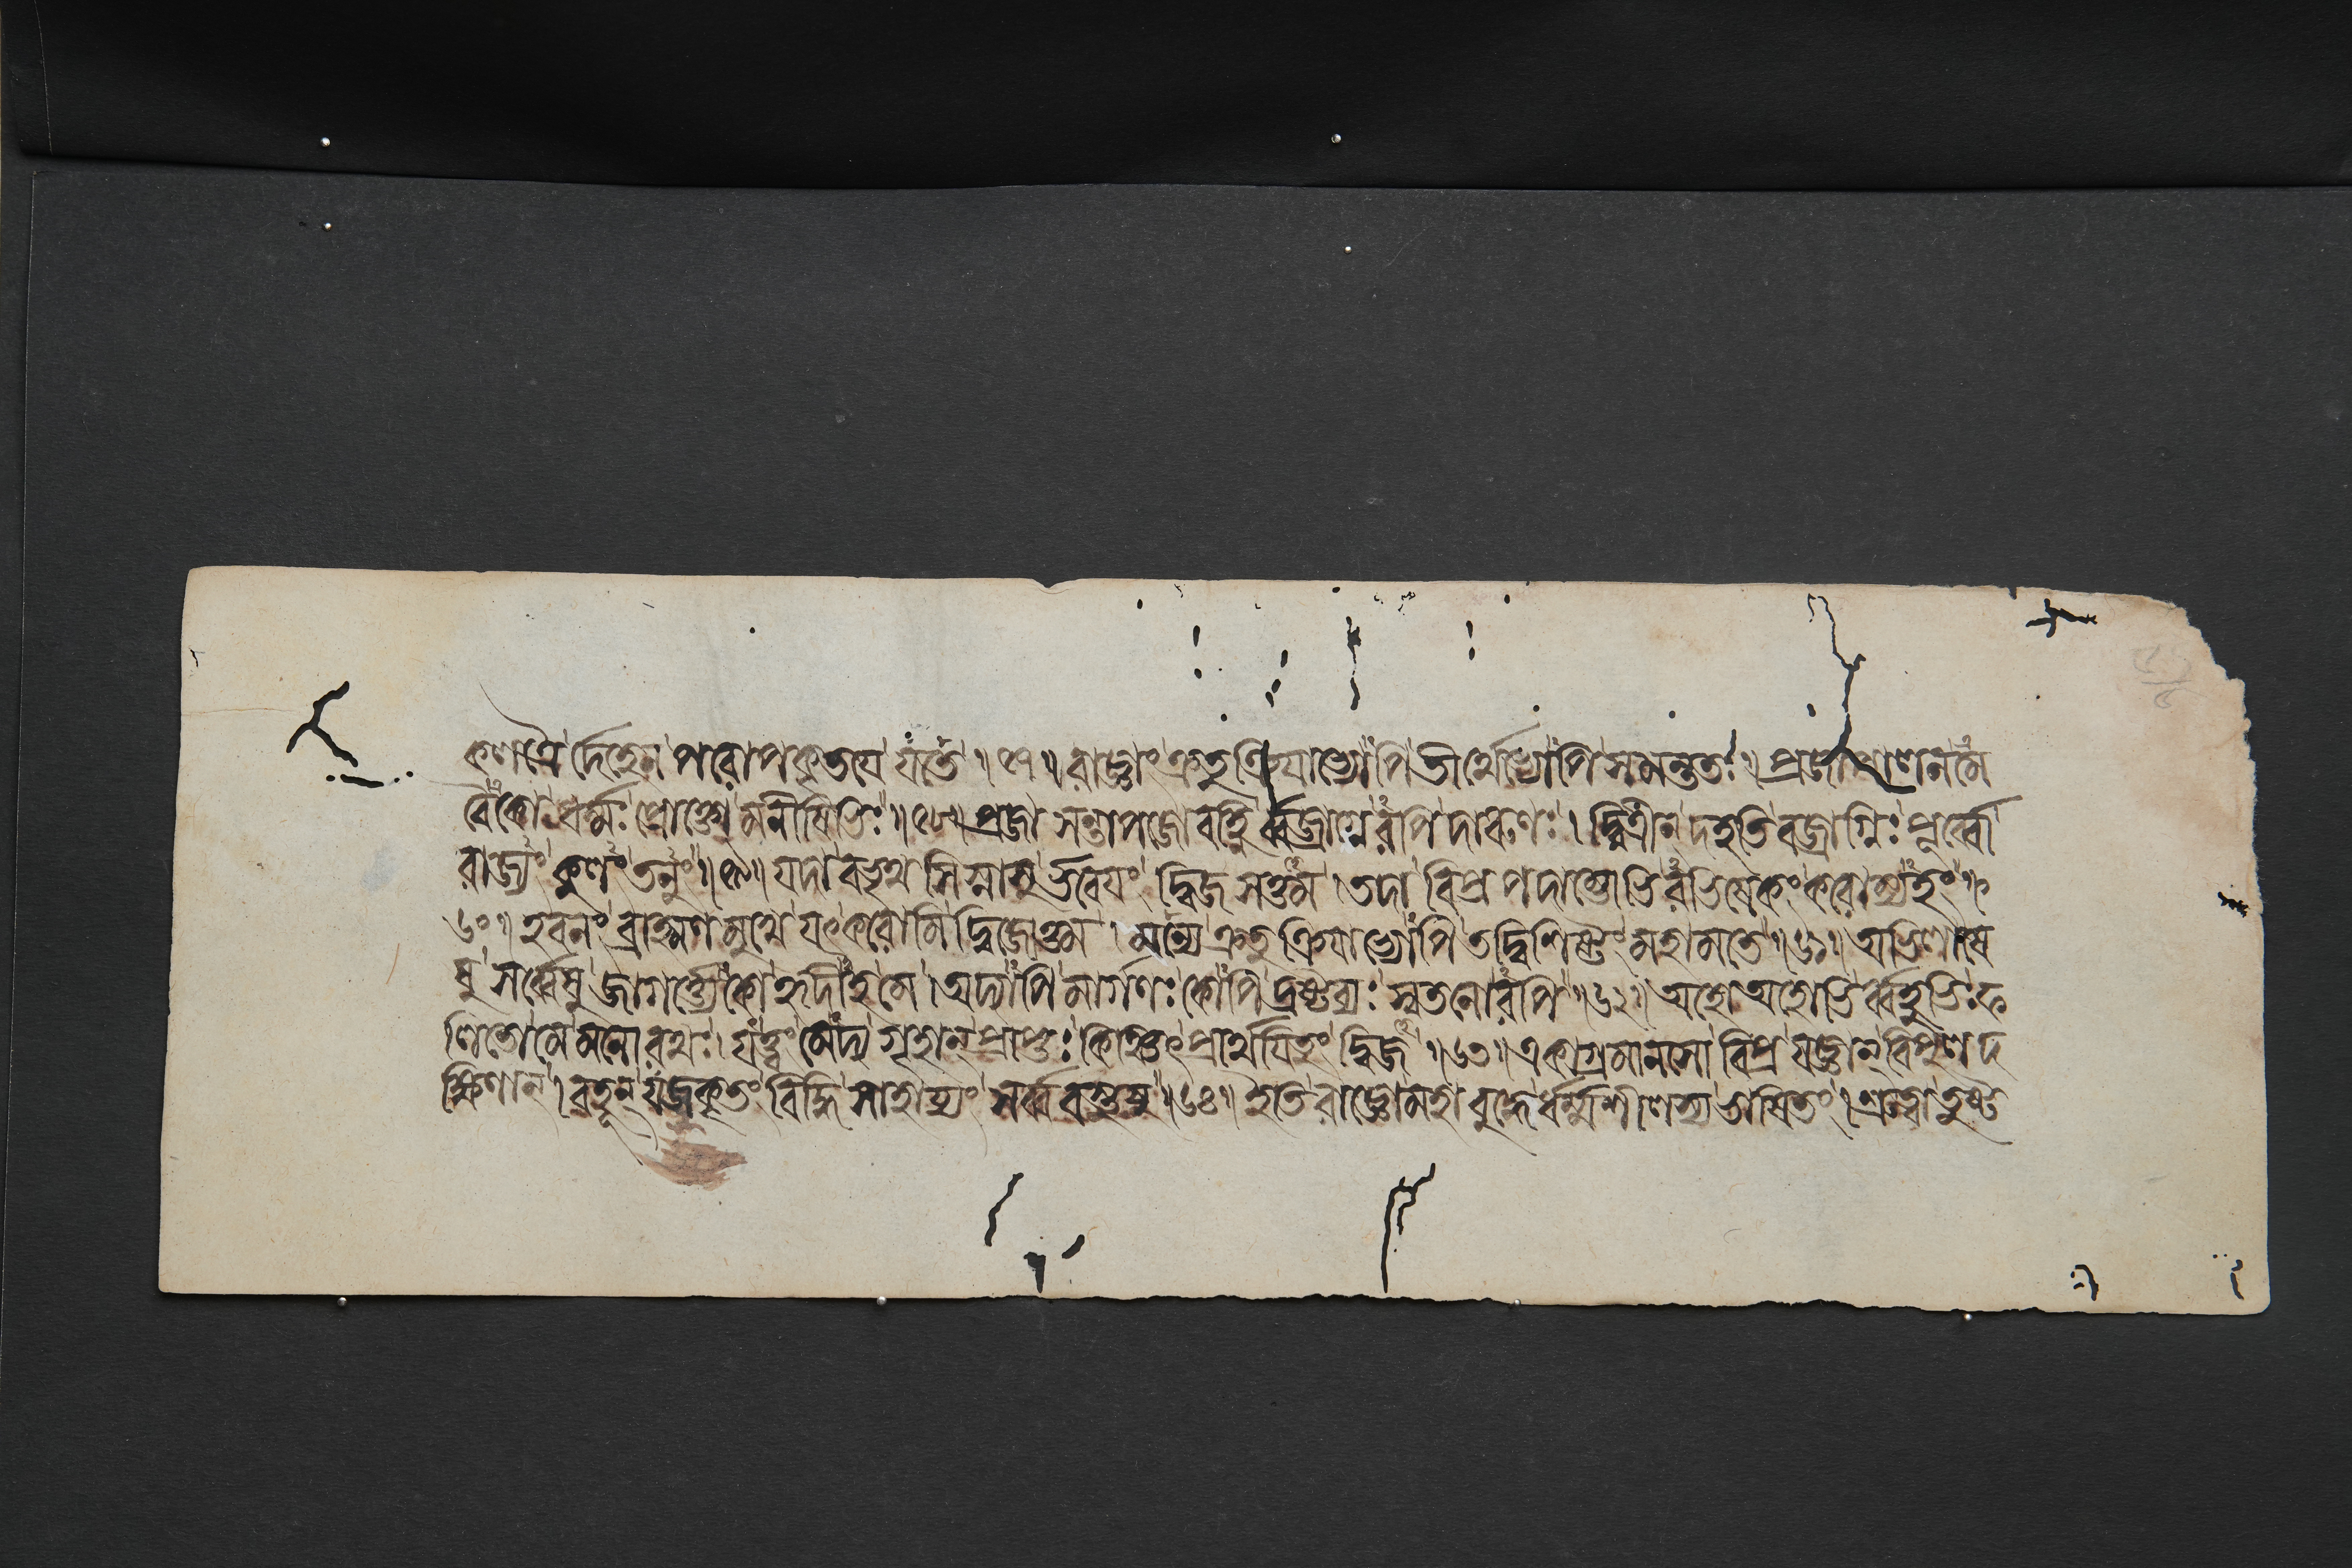 কণপ্রৈর্দেহেন পরোপকৃতয়ে যতেত ॥৫৭॥ রাজ্ঞাং ক্রতুক্রিয়াভ্যোপি তীর্থেভ্যোপি সমন্ততঃ । প্রজা পালনমে
বৈকো ধর্ম্মঃ প্রোক্তো মনীষিভিঃ ॥৫৮॥ প্রজা সন্তাপজো বহ্নি র্ব্বজ্রাগ্নেরপি দারুণঃ । দ্বিত্রান্ দহতি বজ্রাগ্নিঃ পূর্ব্বো
রাজ্যং কুলং তনুং ॥৫৯॥ যদা বভৃথ সিস্নাসু র্ভবেয়ং দ্বিজ সত্তম । তদা বিপ্র পদাম্ভোভিরভিষেকং করোম্যহং ॥
৬০॥ হবনং ব্রাহ্মণ মুখে যৎকরোমি দ্বিজোত্তম । মন্যে ক্রতু ক্রিয়াভ্যোপি তদ্বিশিষ্টং মহামতে ॥৬১॥ অভিলাষে
ষু সর্ব্বেষু জাগর্ত্ত্যেকো হৃদীহ মে । অদ্যাপি মার্গণঃ কোপি দ্রষ্টব্যঃ স্বতনোরপি ॥৬২॥ অহো অহোভির্ব্বহুভিঃ ফ
লিতো মে মনোরথঃ । যত্ত্বং মেদ্য গৃহান্ প্রাপ্তঃ কিঞ্চিৎ প্রার্থয়িতুং দ্বিজ ॥৬৩॥ একাগ্রমানসো বিপ্র যজ্ঞান্ বিপুল দ
ক্ষিণান্ । বহূন্ যজকৃতং বিদ্ধি সাহায্যং সর্ব্ব বস্তুষু ॥৬৪॥ ইতি রাজ্ঞো মহাবুদ্ধে র্ধর্ম্মশীলস্য ভাষিতং । শ্রুত্বা তুষ্ট